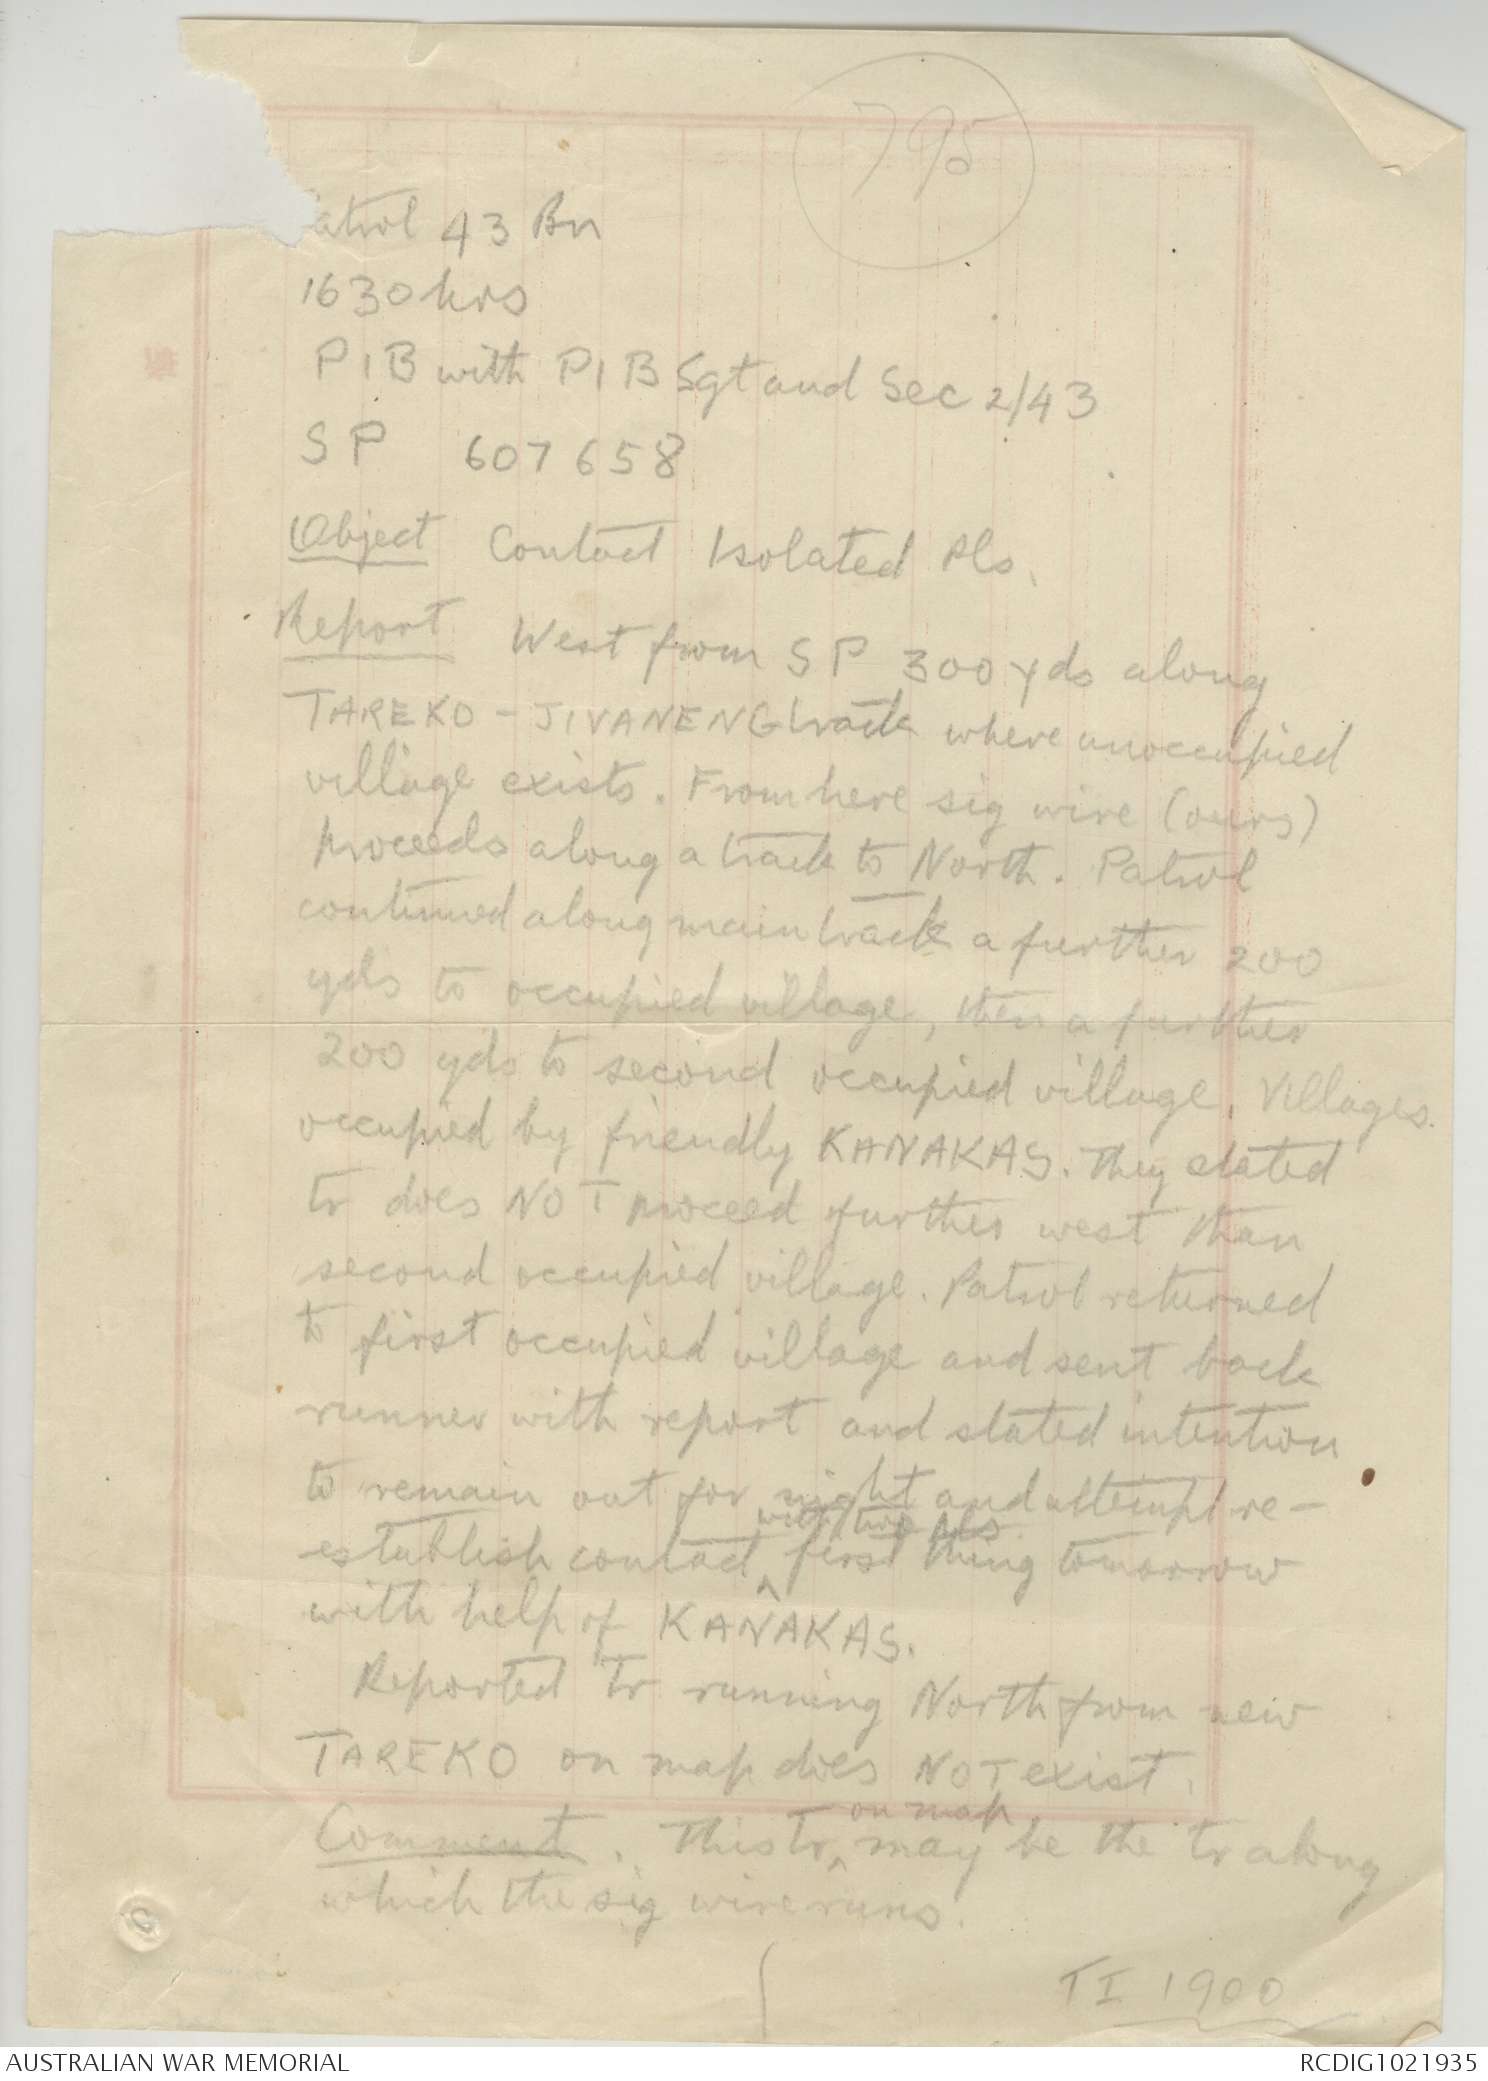 795
atrol 43 Bn
1630 hrs
PIB with PIB Sgt and Sec 2/43
SP 607658
Object Contact Isolated Pls.
Report West from SP 300 yds along
TAREKO - JIVANENG track where unoccupied
village exists. From here sig wire (ours)
proceeds along a track to North. Patrol
continued along main track a further 200
yds to occupied village, then a further
200 yds to second occupied village. Villages
occupied by friendly KANAKAS. They stated
tr does NOT proceed further west than
second occupied village. Patrol returned
to first occupied village and sent back
runner with report and stated intention
to remain out for night and attempt re-
with two Pls
establish contact ^ first thing tomorrow
with help of KANAKAS.
Reported tr running North from new
TAREKO on map does NOT exist.
on map
Comment. This tr ^ may be the tr along
which the sig wire runs.
TI 1900
AUSTRALIAN WAR MEMORIAL
RCDIG1021935